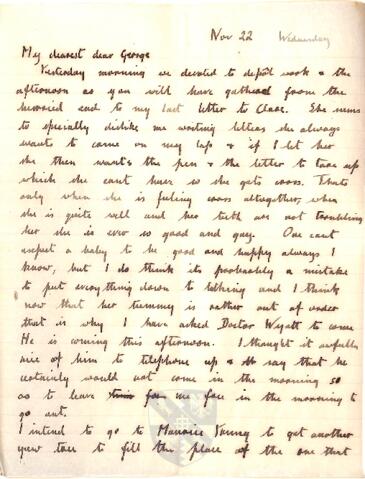 Nov 22 Wednesday
My dearest dear George
Yesterday morning we devoted to depôt work & the
afternoon as you will have gathered from the
hurried end to my last letter to Clare. She seems
to specially dislike me writing letters she always
wants to come on my lap & if I let her
she then wants the pen & the letter to tear up
which she cant have so she gets cross. Thats
only when she is feeling cross altogether, when
she is quite well and her teeth are not troubling
her she is ever so good and gay. One cant
expect a baby to be good and happy always I
know, but I do think its probably a mistake
to put everything down to teething and I think
now that her tummy is rather out of order
that is why I have asked Doctor Wyatt to come
He is coming this afternoon. I thought it awfully
nice of him to telephone up & say that he
certainly would not come in the morning so
as to leave me free in the morning to
go out.
I intend to go to Maurice to get another
yew tree to fill the place of the one that